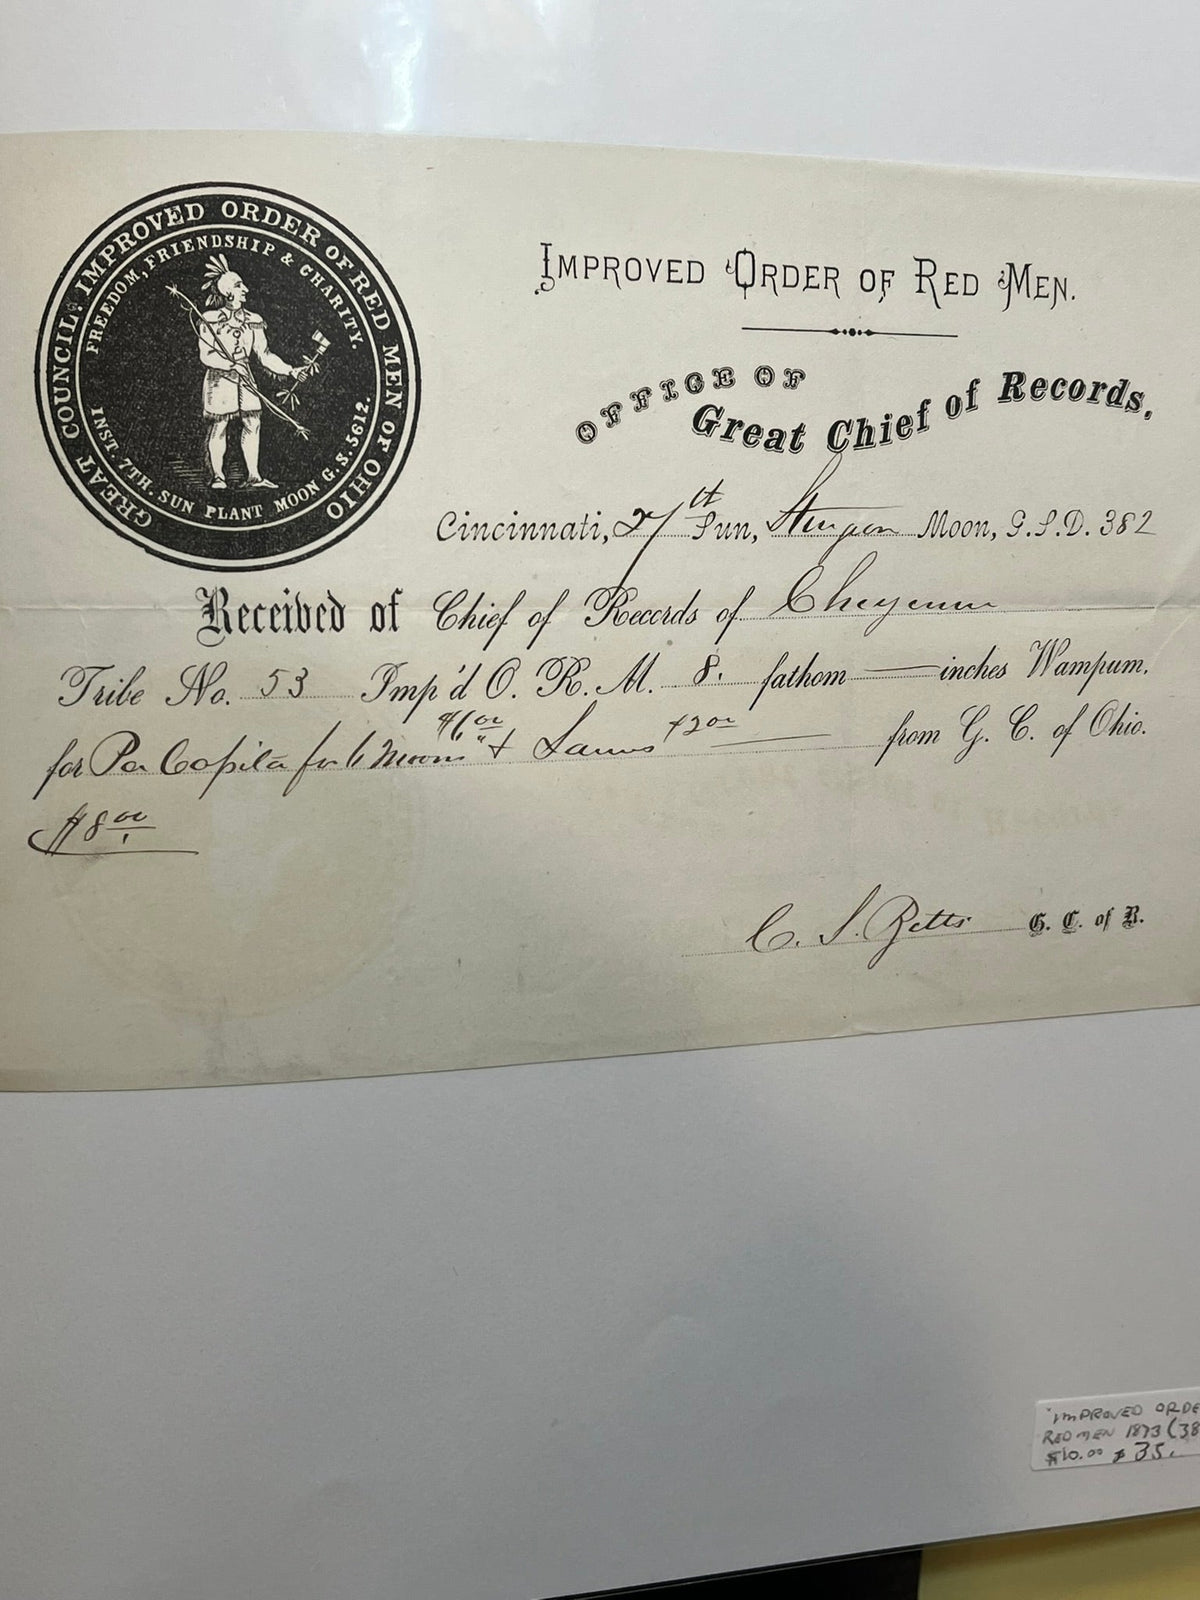 GREAT COUNCIL. IMPROVED ORDER OF RED MEN OF OHIO
FREEDOM, FRIENDSHIP & CHARITY.
INST. 7TH. SUN PLANT MOON G.S. 5612.
IMPROVED ORDER OF RED MEN.
OFFICE OF
Great Chief of Records.
Cincinnati, 27th Sun, Sturgeon Moon, G.S.D. 382
Received of Chief of Records of Cheyenne
Tribe No. 53 Imp'd O. R. M. 8. fathom inches Wampum.
for Per Capita for 6 Moons $6 00 & Laws $2 00 from G. C. of Ohio.
$8 00
C. S. Betts G. C. of R.
"IMPROVED ORDE
RED MEN 1873 (38
$10.00 $35.